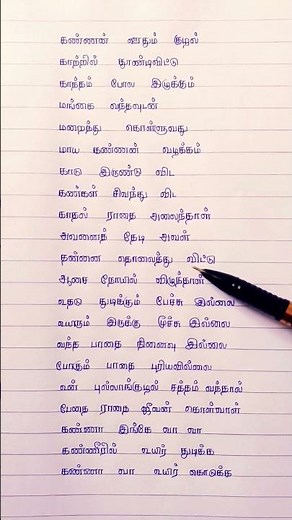 கண்ணன் ஊதும் குழல்
காற்றில் தூண்டிவிட்டு
காந்தம் போல இழுக்கும்
மங்கை வந்தவுடன்
மறைந்து கொள்ளுவது
மாய கண்ணன் வழக்கம்
காடு இருண்டு விட
கண்கள் சிவந்து விட
காதல் ராதை அலைந்தாள்
அவனைத் தேடி அவள்
தன்னை தொலைத்து விட்டு
ஆசை நோயில் விழுந்தாள்
உதடு துடிக்கும் பேச்சு இல்லை
உயிரும் இருக்கு மூச்சு இல்லை
வந்த பாதை நினைவு இல்லை
போகும் பாதை புரியவில்லை
உன் புல்லாங்குழல் சத்தம் வந்தால்
பேதை ராதை ஜீவன் கொள்வாள்
கண்ணா இங்கே வா வா
கண்ணீரில் உயிர் துடிக்க
கண்ணா வா உயிர் கொடுக்க